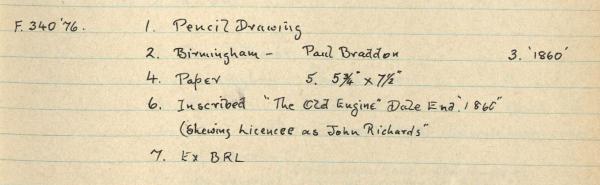 F. 340'76. 1. Pencil Drawing
2. Birmingham - Paul Braddon 3. '1860'
4. Paper 5. 5¾" x 7½"
6. Inscribed "The Old Engine" Dale End. '1860"
(Shewing Licencee as John Richards"
7. Ex BRL